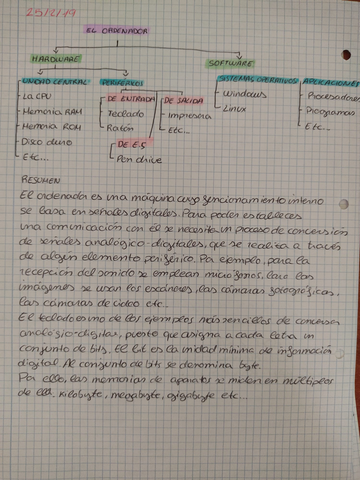 25/2/19
EL ORDENADOR
HARDWARE
SOFTWARE
UNIDAD CENTRAL
PERIFÉRICOS
SISTEMAS OPERATIVOS
APLICACIONES
La CPU
DE ENTRADA
DE SALIDA
Windows
Procesadores
Memoria RAM
Teclado
Impresora
Linux
Programas
Memoria ROM
Ratón
Etc...
Etc...
Disco duro
DE E.S
Etc...
Pendrive
RESUMEN
El ordenador es una máquina cuyo funcionamiento interno
se basa en señales digitales. Para poder establecer
una comunicación con él se necesita un proceso de conversión
de señales analógico-digitales, que se realiza a través
de algún elemento periférico. Por ejemplo, para la
recepción del sonido se emplean micrófonos, para las
imágenes se usan los escáneres, las cámaras fotográficas,
las cámaras de video etc.
El teclado es uno de los ejemplos más sencillos de conversor
analógico-digital, puesto que asigna a cada letra un
conjunto de bits. El bit es la unidad mínima de información
digital. Al conjunto de bits se denomina byte.
Por ello, las memorias de aparatos se miden en múltiplos
de kilobyte, megabyte, gigabyte etc...